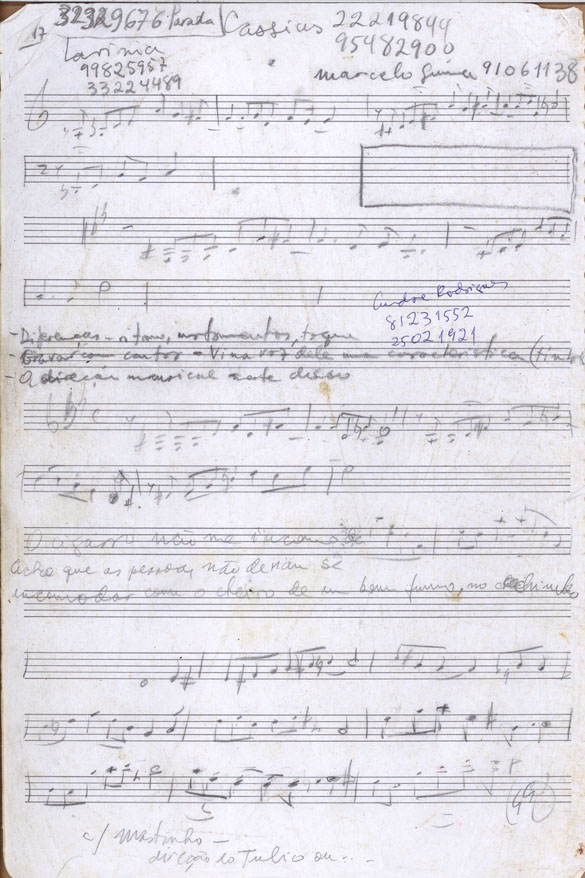 17
32329676 Parada
Cassius 22219844
95482900
Larissa
99825957
33224489
Marcelo 91061138
André Rodrigues
81231552
25021921
- Diferenças - ritmo, instrumentos, toque
- Gravar com cantor - Vi na voz dele uma característica (timbre
- A direção musical neste disco
O cigarro não me incomoda
Acho que as pessoas não deviam se
incomodar com o cheiro de um bom fumo, no
c/ Martinho -
direção do Tulio ou...-